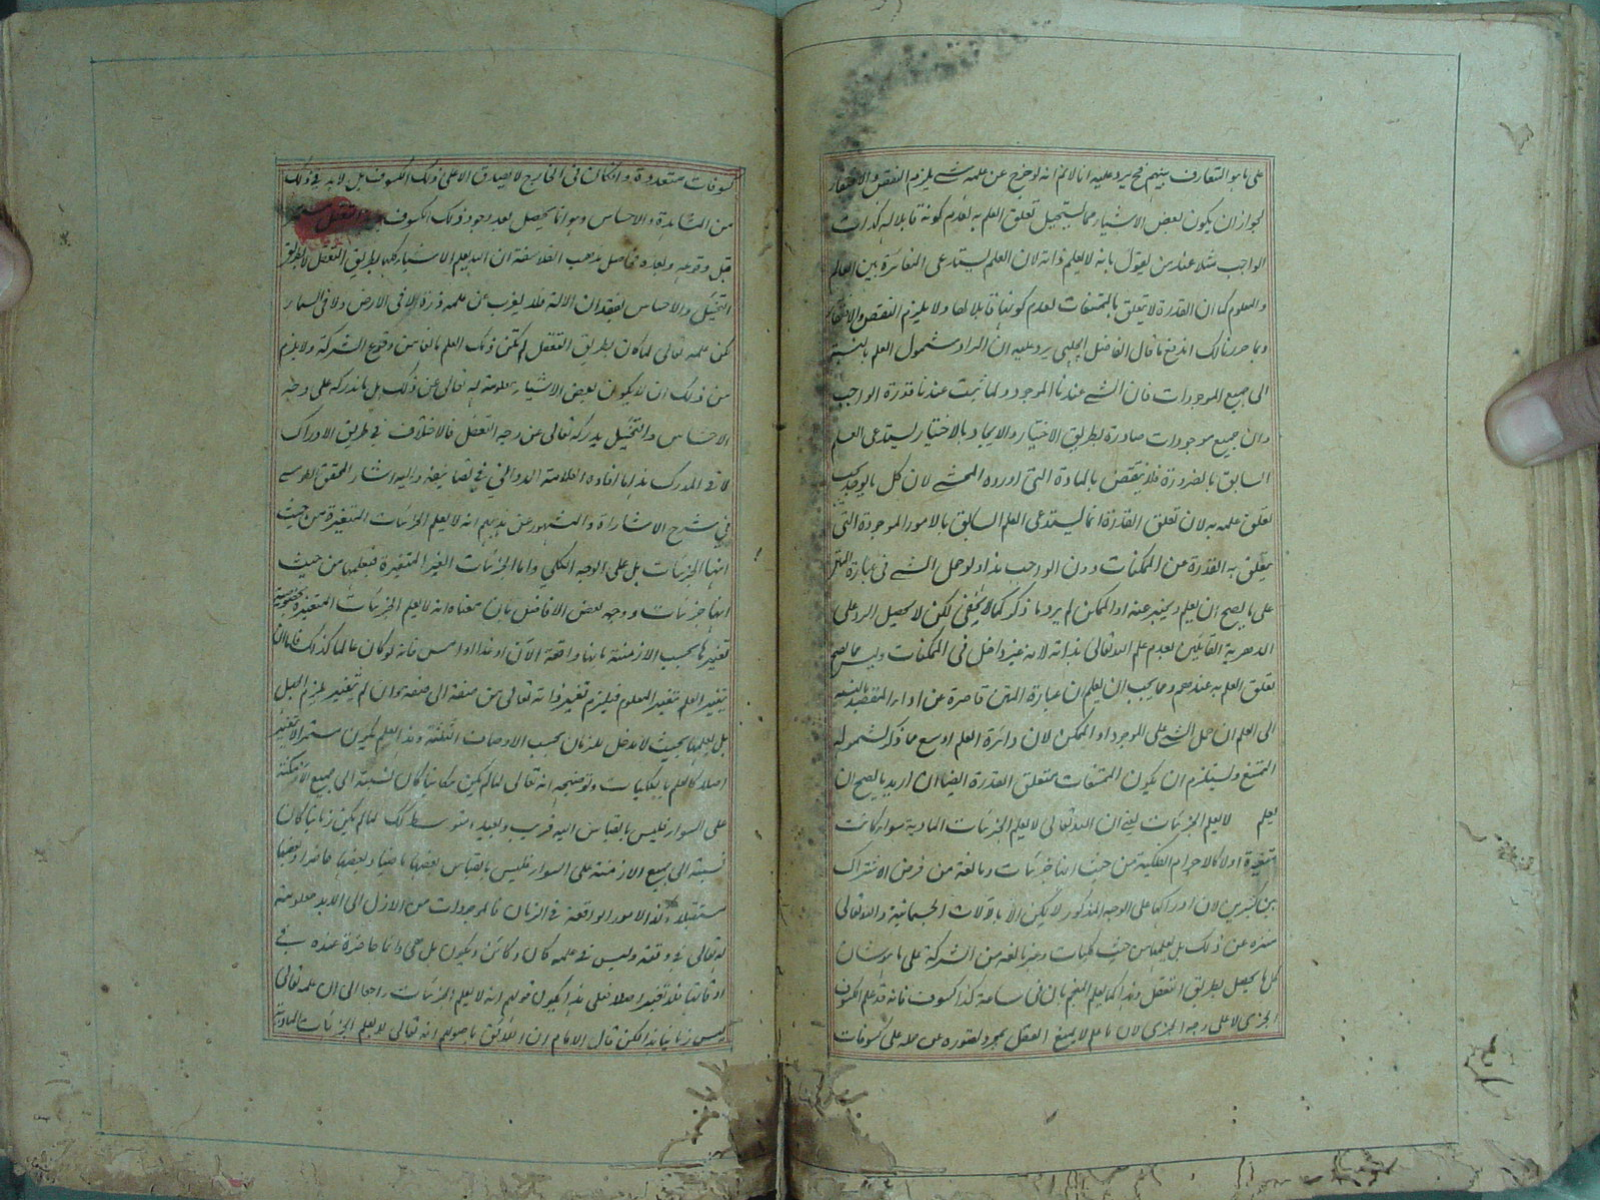 على ما هو المتعارف بينهم فح يرد عليه انا لا نم انه لو خرج عن علمه شے يلزم النقص والافتقار
لجواز ان يكون بعض الاشياء مما يستحيل تعلق العلم به لعدم كونه قابلا له كذات
الواجب مثلا عند من يقول بانه لا يعلم ذاته لان العلم يستدعى المغائرة بين العالم
والمعلوم كما ان القدرة لا يتعلق بالممتنعات لعدم كونها قابلا لها ولا يلزم النقص والافتقار
وبما حررنا لك اندفع ما قال الفاضل الچلپى يرد عليه ان المراد شمول العلم بالنسبة
الى جميع الموجودات فان الشے عندنا الموجود ولما ثبت عندنا قدرة الواجب
وان جميع موجودات صادرة بطريق الاختيار والايجاد بالاختيار يستدعى العلم
السابق بالضرورة فلا ينتقض بالمادة التى اورده المحشے لان كل
تعلق علمه به لان تعلق القدرة انما يستدعى العلم السابق بالامور الموجودة التى
يتعلق به القدرة من الممكنات دون الواجب هذا ولو حمل الشے فى عبارة المتن
على ما يصح ان يعلم ويخبر عنه او الممكن لم يرد ما ذكر كما لا يخفى لكن لا يحصل الرد على
الدهرية القائلين بعدم علم الله تعالى بذاته لانه غير داخل فى الممكنات وليس مما يصح
تعلق العلم به عندهم ومما يجب ان يعلم ان عبارة المتن قاصرة عن اداء المقصد بالنسبة
الى العلم ان حمل الشے على الموجود او الممكن لان دائرة العلم اوسع مما ذكر لشموله
الممتنع ويستلزم ان يكون الممتنعات متعلق القدرة ايضا ان اريد ما يصح ان
يعلم لا يعلم الجزئيات يعنے ان الله تعالى لا يعلم الجزئيات المادية سواء كانت
متغيرة او لا كالاجرام الفلكية من حيث انها جزئيات ومانعة من فرض الاشتراك
بين كثيرين لان ادراكها على الوجه المذكور لا يمكن الا بالالات الجسمانية والله تعالى
منزه عن ذلك بل يعلمها من حيث كليات وغير مانعة من الشركة على ما هو شان
كل ما يحصل بطريق التعقل وهذا كما يعلم المنجم بان فى ساعة كذا كسوف فانه قد علم الكسوف
الجزئى لا على وجه الجزئى لان ما علم لا يمنع العقل بمجرد تصوره عن حمله على كسوفات
كسوفات متعددة وان كان فى الخارج لا يصدق الا على ذلك الكسوف بل لا بد فى ذلك
من المشاهدة والاحساس وهو انما يحصل بعد وجود ذلك الكسوف
قبل وقوعه وبعده فحاصل مذهب الفلاسفة ان الله يعلم الاشياء كلها بطريق التعقل لا بطريق
التخيل والاحساس لفقدان الالة فلا يعزب عن علمه ذرة لا فى الارض ولا فى السماء
لكن علمه تعالى لما كان بطريق التعقل لم يكن ذلك العلم مانعا من وقوع الشركة ولا يلزم
من ذلك ان لا يكون بعض الاشياء معلومة له تعالى عن ذلك بل ما ندركه على وجه
الاحساس والتخيل يدركه تعالى على وجه التعقل فالاختلاف فى طريق الادراك
لا فى المدرك هذا ما افاده العلامة الدوانى فى تصانيفه واليه اشار المحقق الطوسے
فى شرح الاشارات والمشهور من مذهبهم انه لا يعلم الجزئيات المتغيرة من حيث
انها جزئيات بل على الوجه الكلى واما الجزئيات الغير المتغيرة فيعلمها من حيث
انها جزئيات ووجه بعض الافاضل بان معناه انه لا يعلم الجزئيات المتغيرة
تغيرها بحسب الازمنة بانها واقعة الان او غدا او امس فانه لو كان عالما كذلك فاما ان
يتغير العلم بتغير المعلوم فيلزم تغير ذاته تعالى من صفة الى صفة وان لم يتغير يلزم الجهل
بل يعلمها بحيث لا مدخل للزمان بحسب الاوصاف الثلثة وهذا العلم يكون مستمرا لا يتغير
اصلا كالعلم بالكليات وتوضيحه انه تعالى لما لم يكن مكانيا كان نسبته الى جميع الامكنة
على السواء فليس بالقياس اليه قريب وبعيد ومتوسط كك لما لم يكن زمانيا كان
نسبته الى جميع الازمنة على السواء فليس بالقياس بعضها ماضيا وبعضها حاضرا وبعضها
مستقبلا وكذا الامور الواقعة فى الزمان فالموجودات من الازل الى الابد معلومة
له تعالى فى وقته وليس فى علمه كان وكائن ويكون بل هى دائما حاضرة عنده فے
اوقاتها بلا تغير اصلا فعلى هذا يكون قولهم انه لا يعلم الجزئيات راجعا الى ان علمه تعالى
ليس زمانيا هذا لكن قال الامام ان اللائق باصولهم انه تعالى لا يعلم الجزئيات المادية